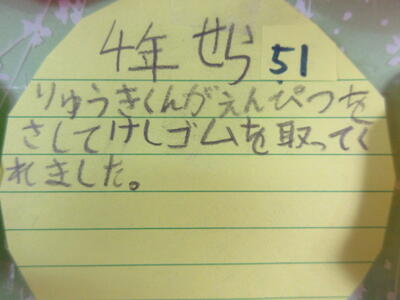 4年 せら 51
りゅうきくんがえんぴつを
さしてけしゴムを取ってく
れました。